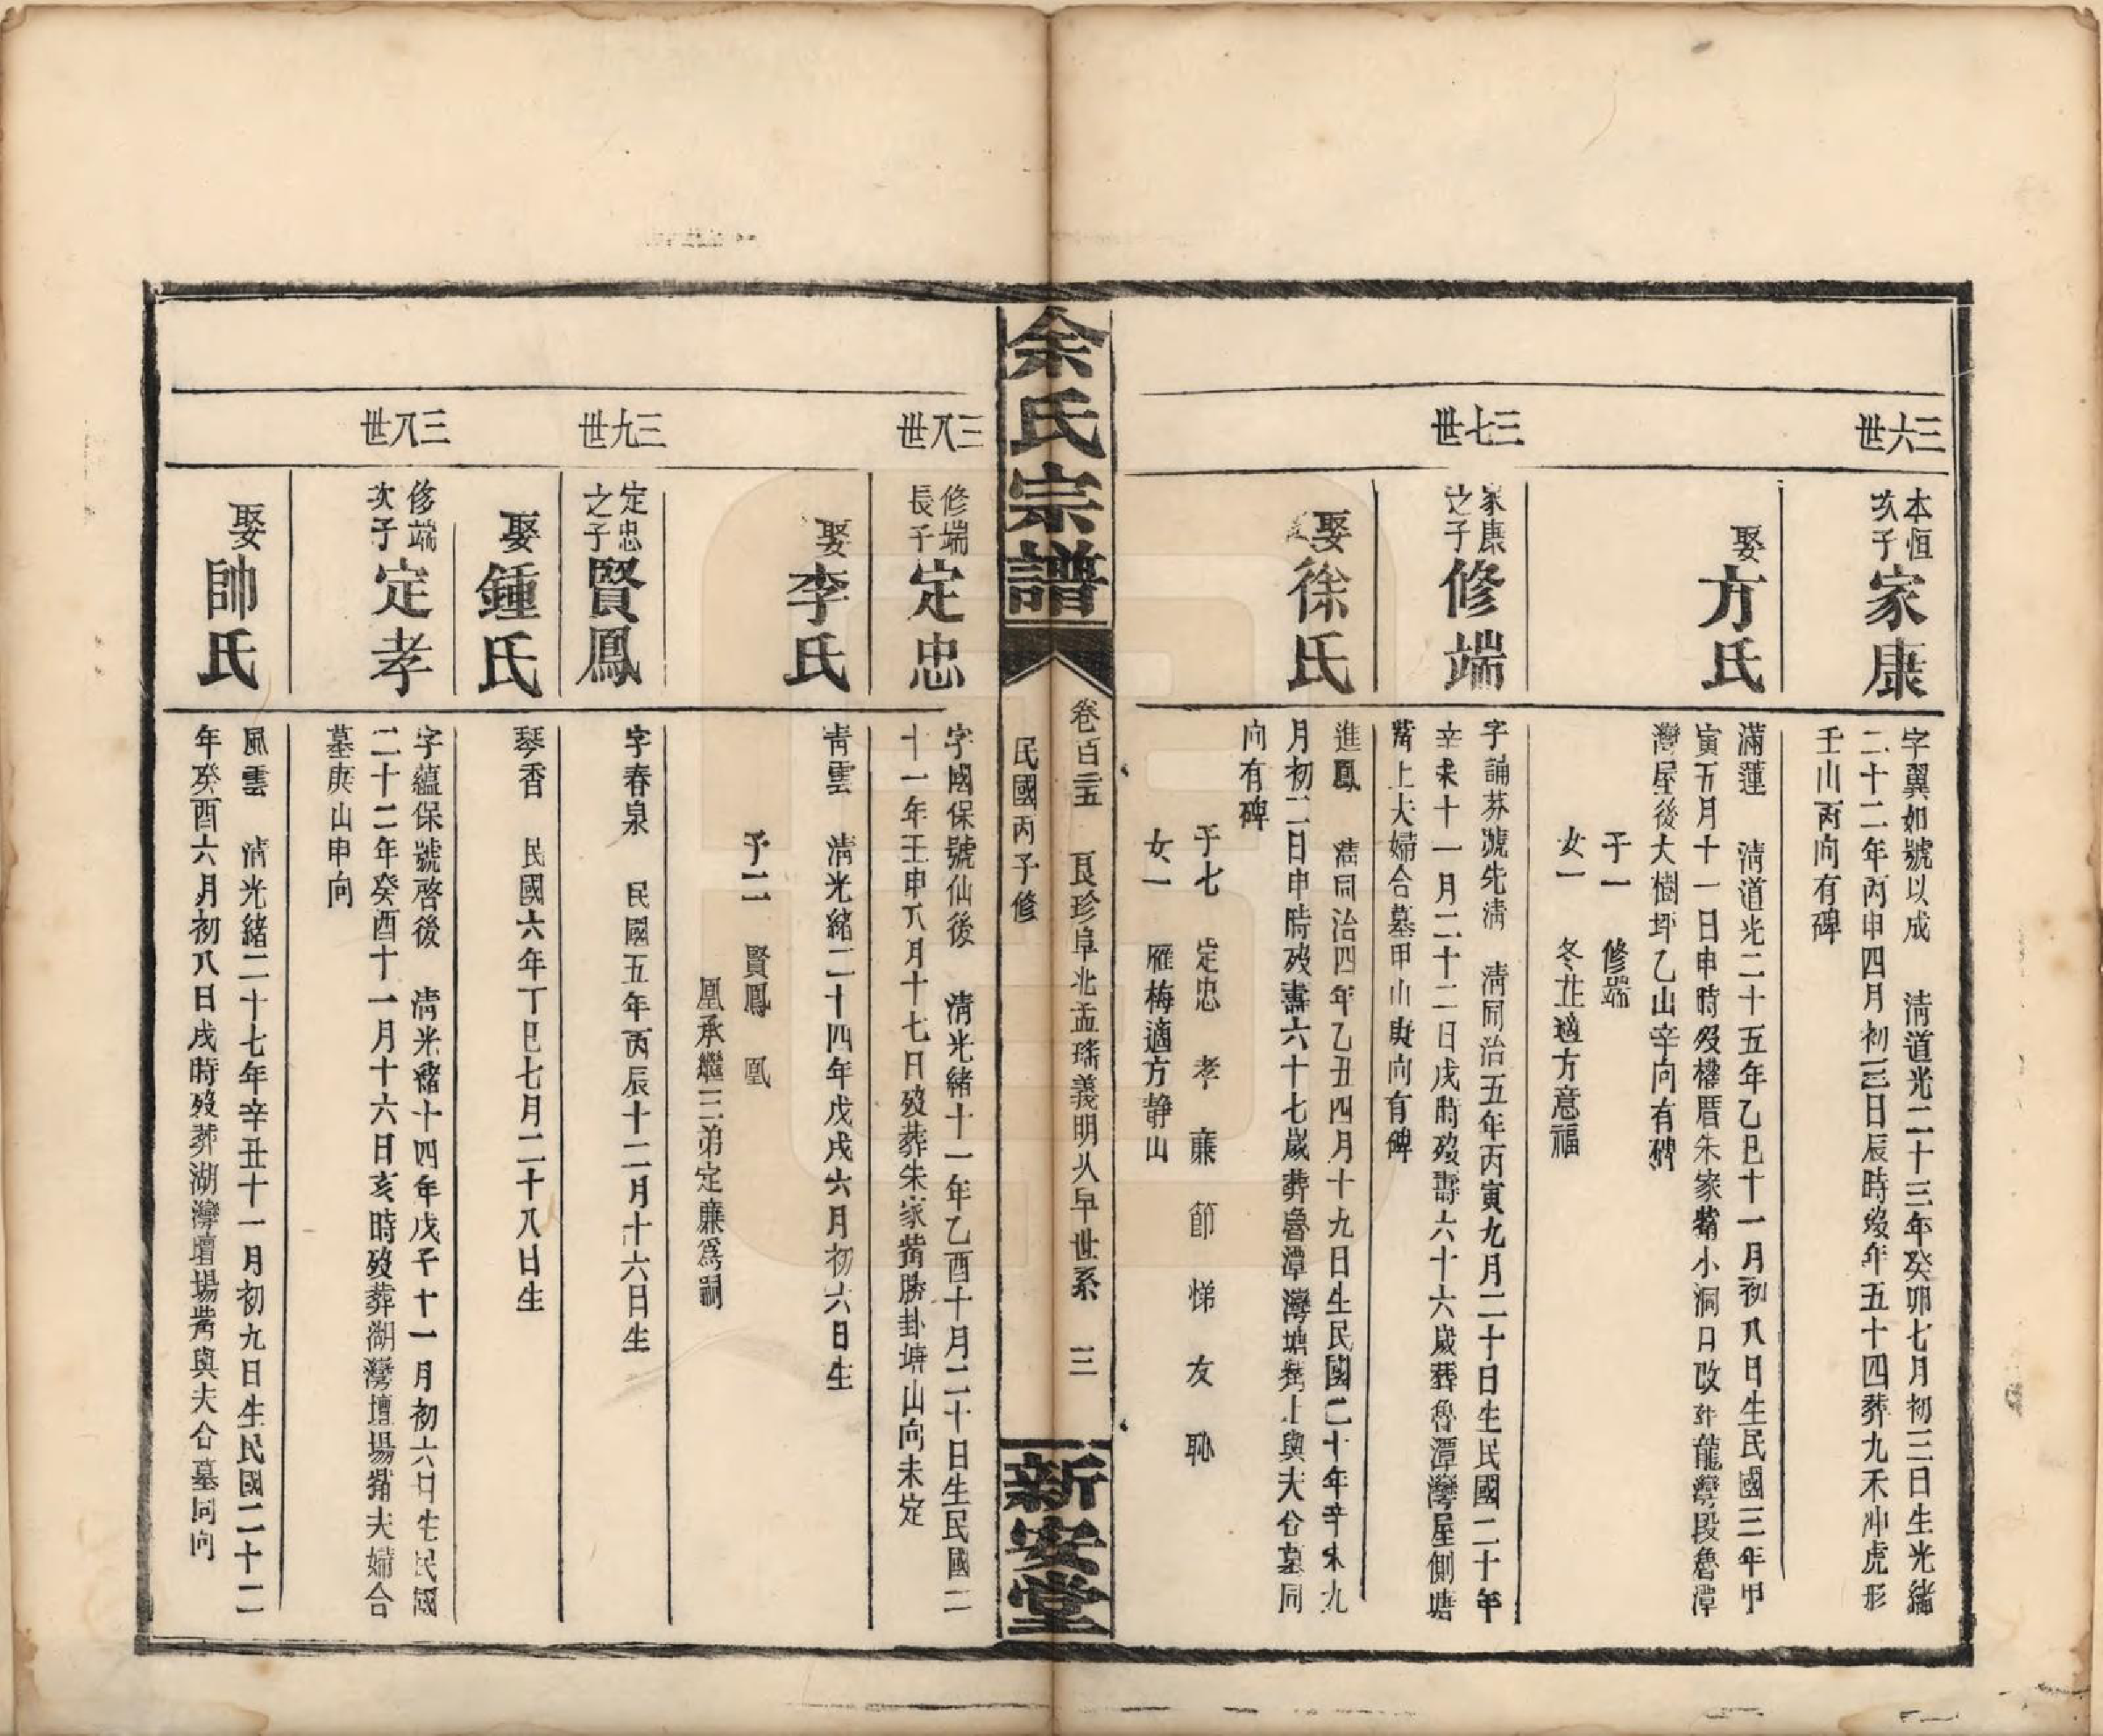 三六世
本恒
次子
家康
字翼如號以成　清道光二十三年癸卯七月初三日生光緒
二十二年丙申四月初三日辰時歿年五十四葬九禾冲虎形
壬山丙向有碑
娶方氏
滿蓮　清道光二十五年乙巳十一月初八日生民國三年甲
寅五月十一日申時歿權厝朱家嘴小洞口改葬龍灣段魯潭
灣屋後大樹坪乙山辛向有碑
子一　修端
女一　冬荘適方意福
三七世
家康
之子
修端
字誦芬號先清　清同治五年丙寅九月二十日生民國二十年
辛未十一月二十二日戌時歿壽六十六歲葬魯潭灣屋側塘
嘴上夫婦合墓甲山庚向有碑
娶徐氏
進鳳　清同治四年乙丑四月十九日生民國二十年辛未九
月初二日申時歿壽六十七歲葬魯潭灣塘嘴上與夫合墓同
向有碑
子七　定忠　孝　廉　節　悌　友　恥
女一　雁梅適方静山
余氏宗譜
卷百三五　艮珍阜北孟瑞義明从早世系　三
民國丙子修
新安堂
三八世
修端
長子
定忠
字國保號仙後　清光緒十一年乙酉十月二十日生民國二
十一年壬申八月十七日歿葬朱家嘴勝卦塘山向未定
娶李氏
青雲　清光緒二十四年戊戌六月初六日生
子二　賢鳳　凰
凰承繼三弟定廉爲嗣
三九世
定忠
之子
賢鳳
字春泉　民國五年丙辰十二月十六日生
娶鍾氏
琴香　民國六年丁巳七月二十八日生
三八世
修端
次子
定孝
字蘊保號啓後　清光緒十四年戊子十一月初六日生民國
二十二年癸酉十一月十六日亥時歿葬湖灣壇場嘴夫婦合
墓庚山申向
娶帥氏
風雲　清光緒二十七年辛丑十一月初九日生民國二十二
年癸酉六月初八日戌時歿葬湖灣壇場嘴與夫合墓同向